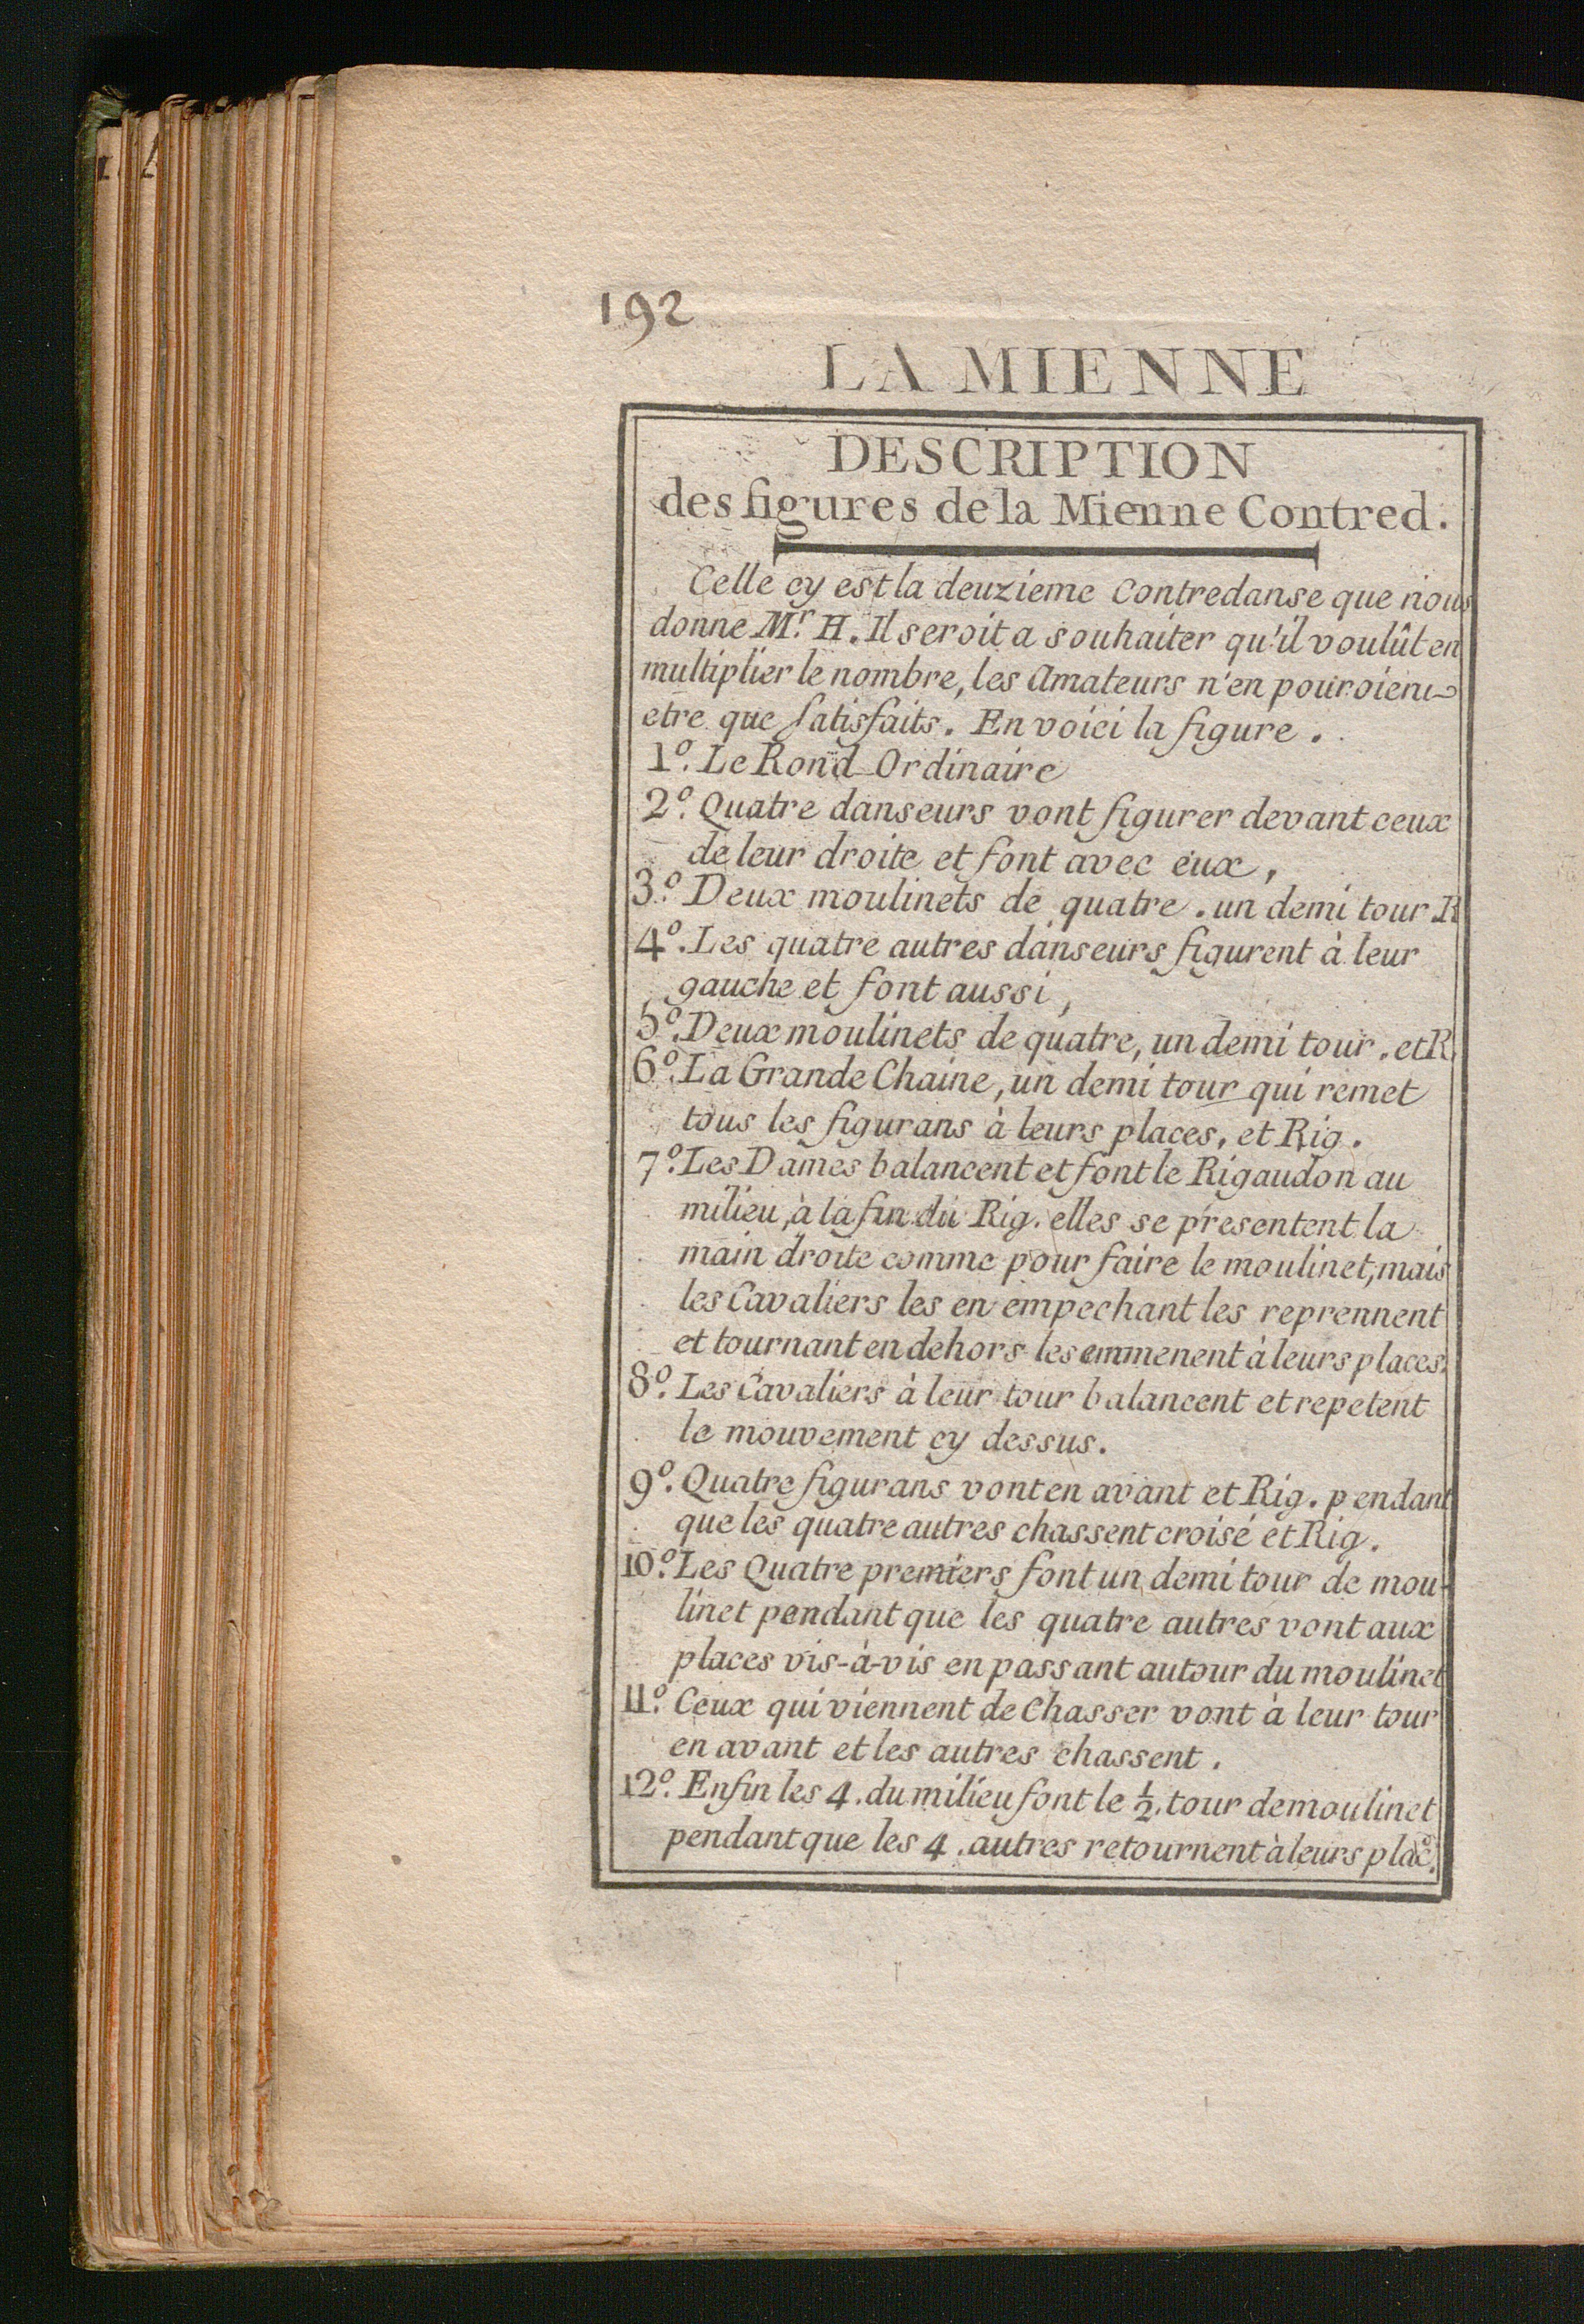 192
LA MIENNE
DESCRIPTION
des figures de la Mienne Contred.
Celle cy est la deuzieme Contredanse que nous
donne Mr. H. Il seroit a souhaiter qu'il voulût en
multiplier le nombre, les Amateurs n'en pouroient
etre que satisfaits. En voici la figure.
1º. Le Rond Ordinaire
2º. Quatre danseurs vont figurer devant ceux
de leur droite et font avec eux,
3º. Deux moulinets de quatre. un demi tour. R
4º. Les quatre autres danseurs figurent à leur
gauche et font aussi,
5º. Deux moulinets de quatre, un demi tour. et R.
6º. La Grande Chaine, un demi tour qui remet
tous les figurans à leurs places, et Rig.
7º. Les Dames balancent et font le Rigaudon au
milieu, à la fin du Rig. elles se presentent la
main droite comme pour faire le moulinet, mais
les Cavaliers les en empechant les reprennent
et tournant en dehors les emmenent à leurs places.
8º. Les Cavaliers à leur tour balancent et repetent
le mouvement cy dessus.
9º. Quatre figurans vont en avant et Rig. pendant
que les quatre autres chassent croisé et Rig.
10º. Les Quatre premiers font un demi tour de mou-
linet pendant que les quatre autres vont aux
places vis-à-vis en passant autour du moulinet
11º. Ceux qui viennent de Chasser vont à leur tour
en avant et les autres chassent.
12º. Enfin les 4. du milieu font le ½. tour de moulinet
pendant que les 4. autres retournent à leurs plac.